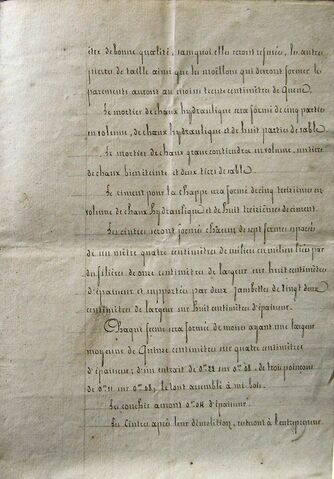 être de bonne qualité, sans quoi elles seront refusées, les autres
pierres de taille ainsi que les moellons qui devront former les
parements auront au moins trente centimètres de queue.
Le mortier de chaux hydraulique sera formé de cinq parties
en volume, de chaux hydraulique et de huit parties de sable.
Le mortier de chaux grasse contiendra en volume, un tiers
de chaux bien éteinte et deux tiers de sable.
Le ciment pour la chappe sera formé de cinq treizièmes en
volume de chaux hydraulique et de huit treizièmes de ciment.
Les cintres seront formés chacun de sept fermes espacées
de un mètre quatre centimètres de milieu en milieu liées par
des filières de onze centimètres de largeur sur huit centimètres
d'épaisseur et supportées par deux jambettes de vingt deux
centimètres de largeur sur huit centimètres d'épaisseur.
Chaque ferme sera formée de moises ayant une largeur
moyenne de quinze centimètres sur quatre centimètres
d'épaisseur; d'un entrait de 0m22 sur 0m08. de trois poinçons
de 0m11 sur 0m08, le tout assemblé à mi-bois.
Les couchis auront 0m04 d'épaisseur.
Les cintres après leur démolition, resteront à l'entrepreneur